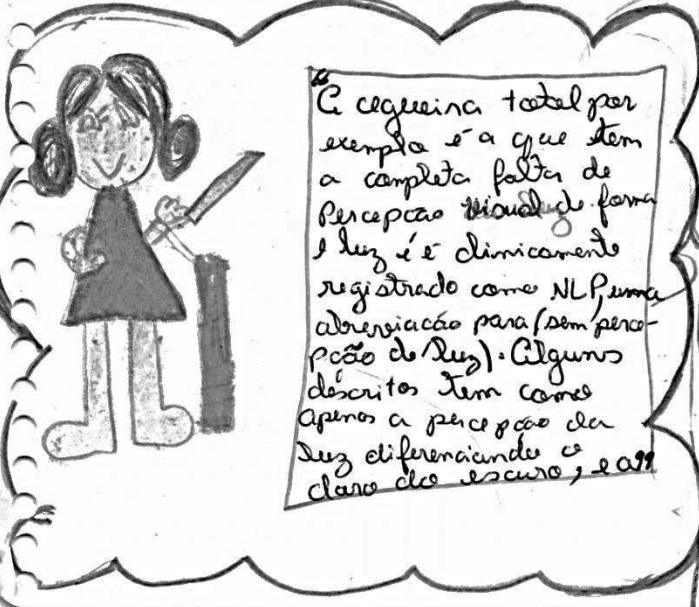 "A cegueira total por
exemplo é a que tem
a completa falta de
Percepcao visual de forma
e luz é é clinicamente
registrado como NLP, uma
abreviacão para (sem perce-
pção de luz). Alguns
descritos tem como
apenas a percepção da
luz diferenciando o
claro do escuro, e a"